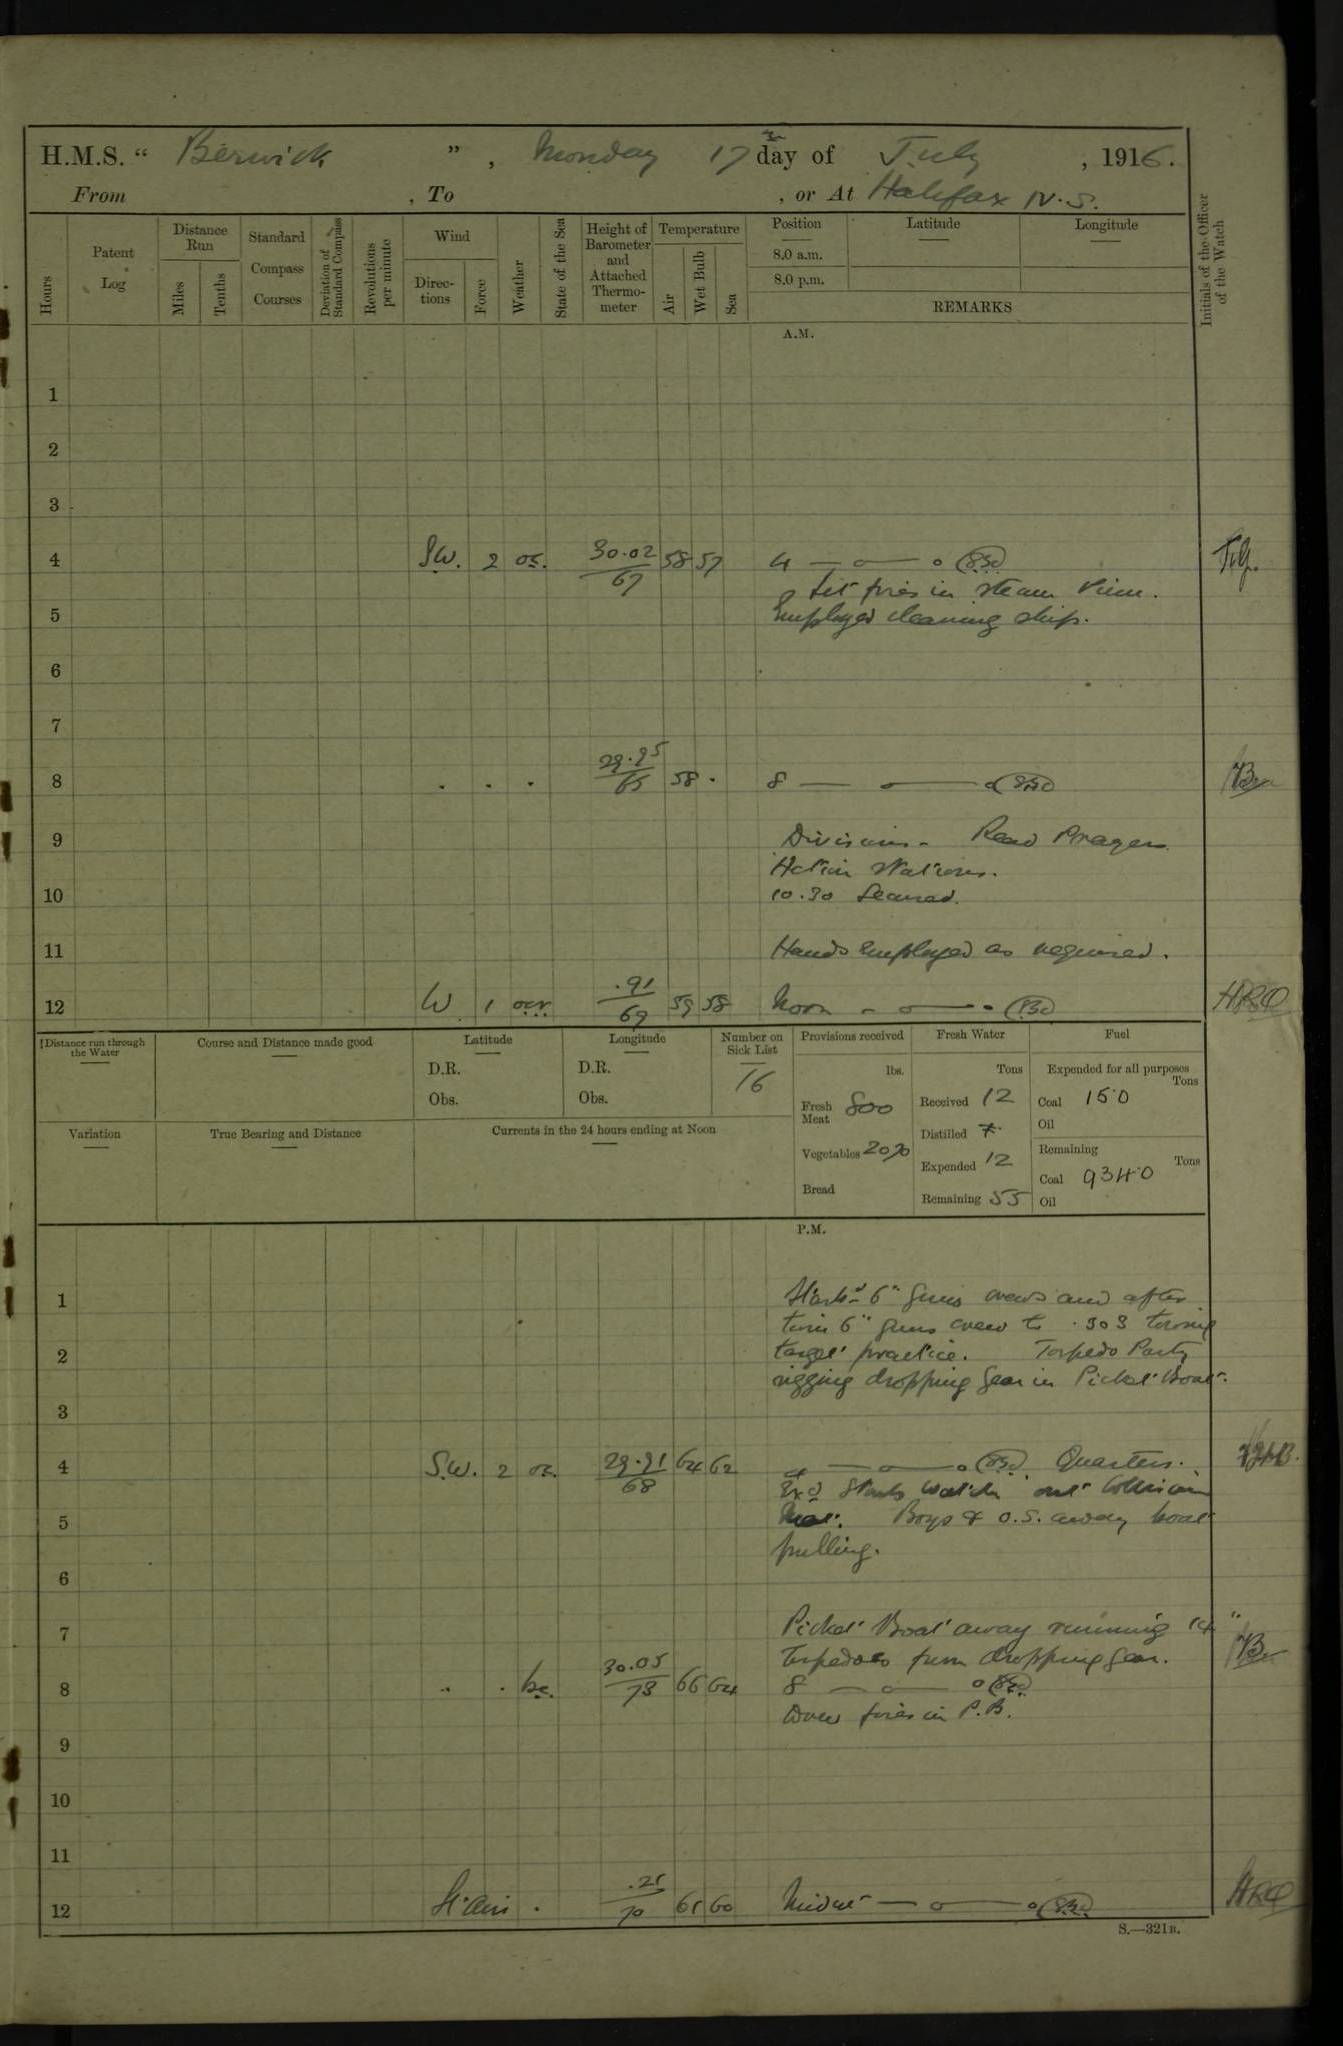 H.M.S. “ Berwick ” , Monday 17th day of July , 1916.
From , To , or At Halifax N.S.
Hours
Patent Log
Distance Run
Miles
Tenths
Standard Compass Courses
Deviation of Standard Compass
Revolutions per minute
Wind
Directions
Force
Weather
State of the Sea
Height of Barometer and Attached Thermometer
Temperature
Air
Wet Bulb
Sea
Position
8.0 a.m.
8.0 p.m.
Latitude
Longitude
REMARKS
Initials of the Officer of the Watch
A.M.
1
2
3
4 SW. 2 oc. 30.02 67 58 57 4
Lit fires in steam
Employed cleaning ship.
5
6
7
8 . . . 29.95 65 58 . 8
9 Divisions. Read Prayers
Action Stations.
10 10.30 Secured.
11 Hands employed as required.
12 W 1 ocr .91 69 59 58 Noon HRO
Distance run through the Water
Course and Distance made good
Latitude
D.R.
Obs.
Longitude
D.R.
Obs.
Number on Sick List
16
Provisions received
lbs.
Fresh Meat 800
Vegetables
Bread
Fresh Water
Tons
Received 12
Distilled 7
Expended 12
Remaining 55
Fuel
Expended for all purposes
Tons
Coal 150
Oil
Remaining
Tons
Coal 9340
Oil
Variation
True Bearing and Distance
Currents in the 24 hours ending at Noon
P.M.
1 Starbd 6" guns crews and after
turn 6" guns crew to .303 towing
2 target practice. Torpedo Party
rigging dropping gear in Picket Boat.
3
4 S.W. 2 oc. 29.91 68 64 62 4 Quarters.
Exd Starb Watch out Collision
5 Mat. Boys & O.S. away boat
pulling.
6
7 Picket Boat away running 14"
torpedoes from dropping gear.
8 . . bc. 30.05 73 66 64 8
Drew fires in P.B.
9
10
11
12 Airs . 70 65 60 Midnt HRO
S.—321B.